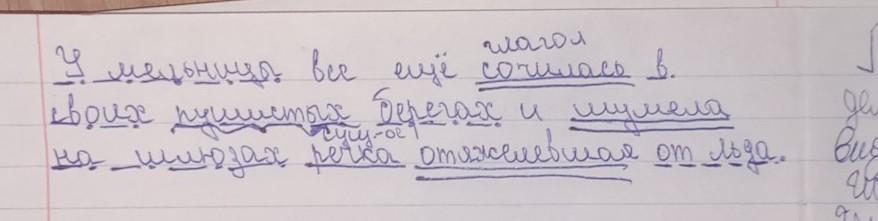 глагол
У мельницы все ещё сочилась в
своих пушистых берегах и шумела
сущ-ое
на шлюзах речка отяжелевшая от льда.